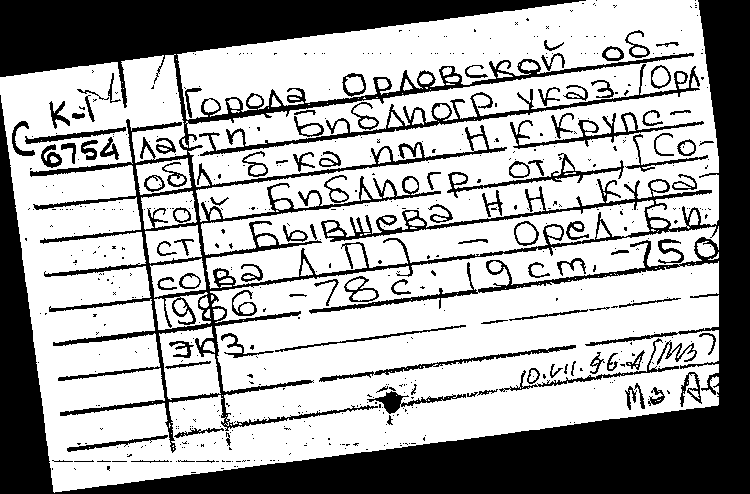 К-1
С 6754
Города Орловской об-
ласти: Библиогр. указ. / Орл.
обл. б-ка им. Н.К.Крупс-
кой. Библиогр. отд.; [Со-
ст.: Бывшева Н.Н., Кура-
сова Л.П.]. - Орел: Б.и.,
1986. - 78 с.; 19 см. - 750
экз.